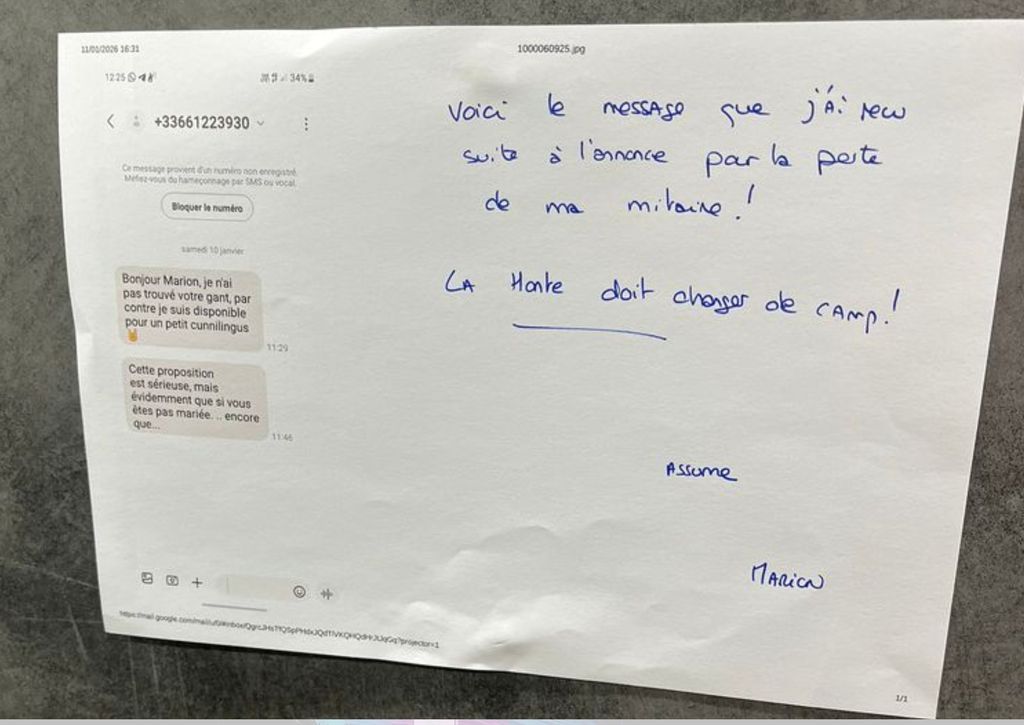 11/01/2026 16:31
1000060925.jpg
12:25
34%
+33661223930
Ce message provient d'un numéro non enregistré.
Méfiez-vous du hameçonnage par SMS ou vocal.
Bloquer le numéro
samedi 10 janvier
Bonjour Marion, je n'ai
pas trouvé votre gant, par
contre je suis disponible
pour un petit cunnilingus
11:29
Cette proposition
est sérieuse, mais
évidemment que si vous
êtes pas mariée. .. encore
que...
11:46
Voici le message que j'ai recu
suite à l'annonce par la perte
de ma mitaine !
LA Honte doit changer de CAMP !
Assume
MARION
1/1